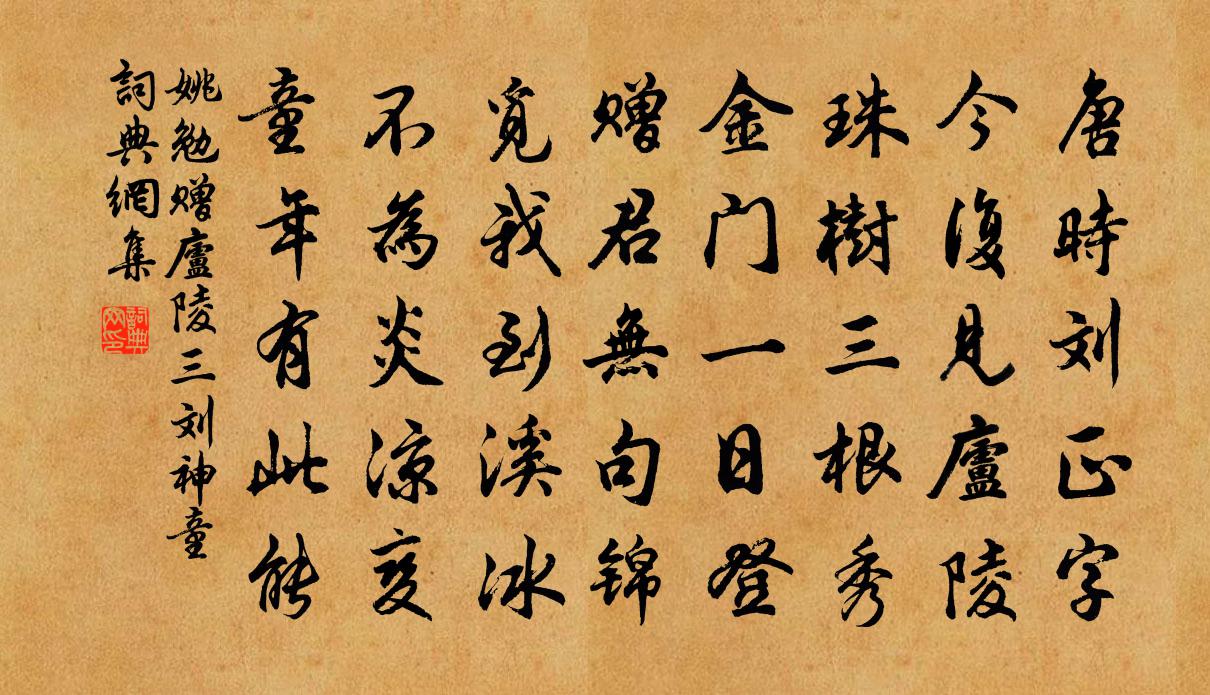 唐時刘正字
今復見廬陵
珠樹三根秀
金门一日登
赠君無句锦
覓我到溪冰
不為炎凉变
童年有此能
姚勉赠廬陵三刘神童
詞典網集
詞典网印